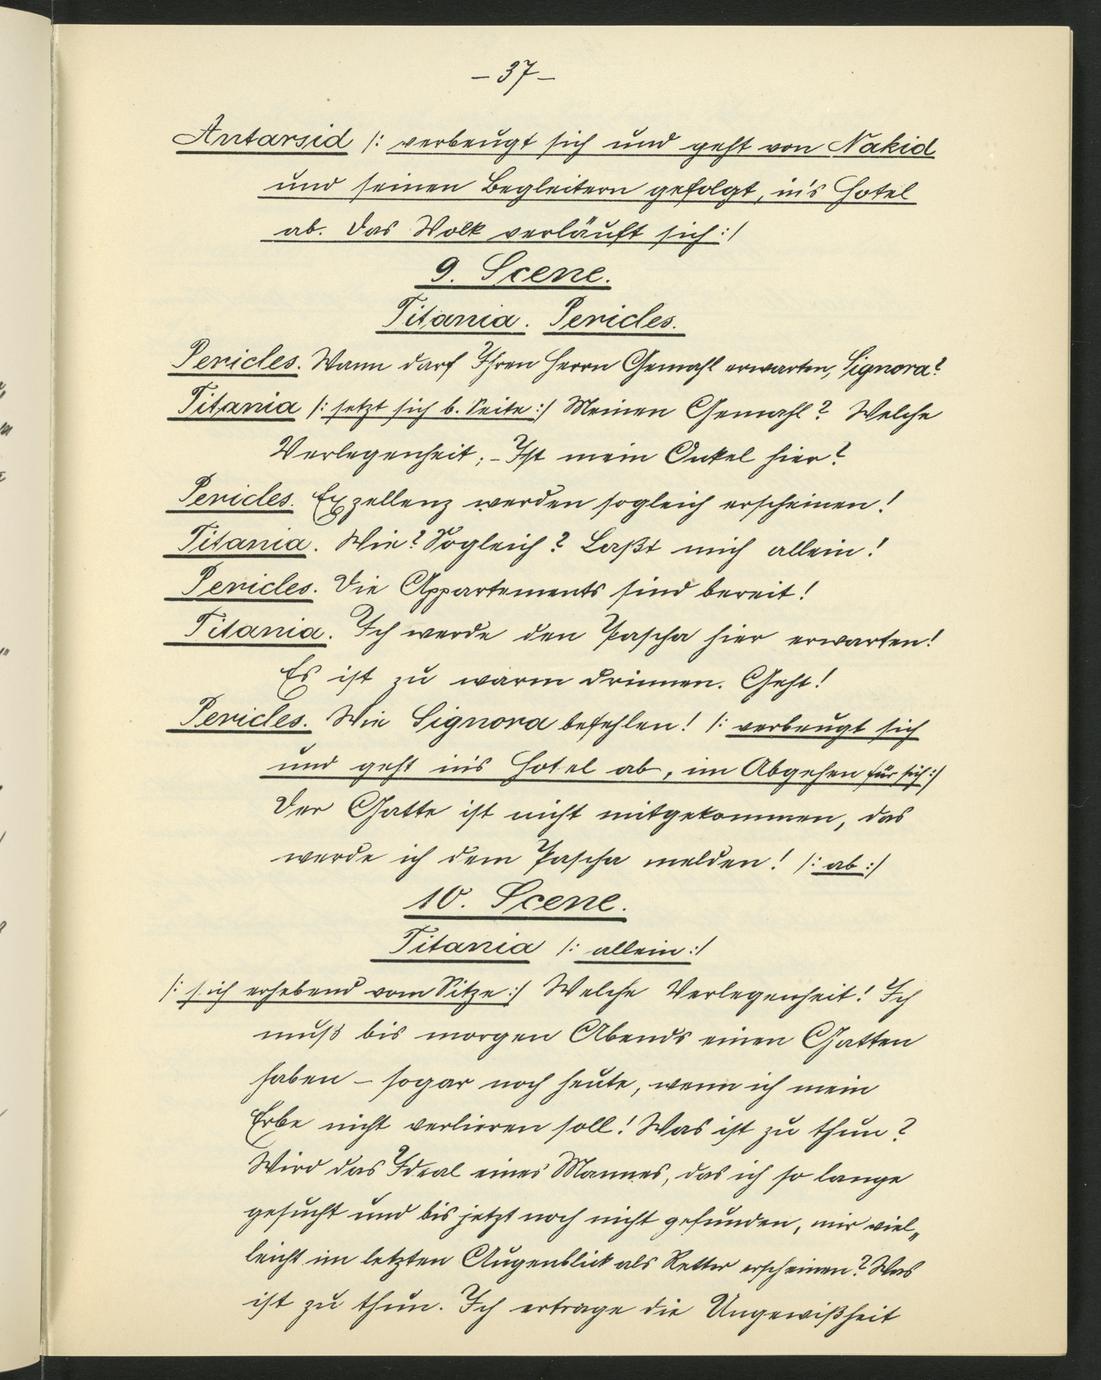 – 37 –
Antarsid /: verbeugt sich und geht von Nakid
und seinen Begleitern gefolgt, in's Hotel
ab. Das Volk verläuft sich :/
9. Scene.
Titania. Pericles.
Pericles. Wann darf Ihren Herrn Gemahl erwarten, Signora?
Titania /: setzt sich b. Seite :/ Meinen Gemahl? Welche
Verlegenheit; – Ist mein Onkel hier?
Pericles. Exzellenz werden sogleich erscheinen!
Titania. Wie? Sogleich? Laßt mich allein!
Pericles. Die Appartements sind bereit!
Titania. Ich werde den Pascha hier erwarten!
Es ist zu warm drinnen. Geht!
Pericles. Wie Signora befehlen! /: verbeugt sich
und geht in's Hotel ab, im Abgehen für sich :/
Der Gatte ist nicht mitgekommen, das
werde ich dem Pascha melden! /: ab :/
10. Scene.
Titania /: allein :/
/: sich erhebend vom Sitze :/ Welche Verlegenheit! Ich
muß bis morgen Abends einen Gatten
haben – sogar noch heute, wenn ich mein
Erbe nicht verlieren soll! Was ist zu thun?
Wird das Ideal eines Mannes, das ich so lange
gesucht und bis jetzt noch nicht gefunden, mir viel„
leicht im letzten Augenblick als Retter erscheinen? Was
ist zu thun. Ich ertrage die Ungewißheit